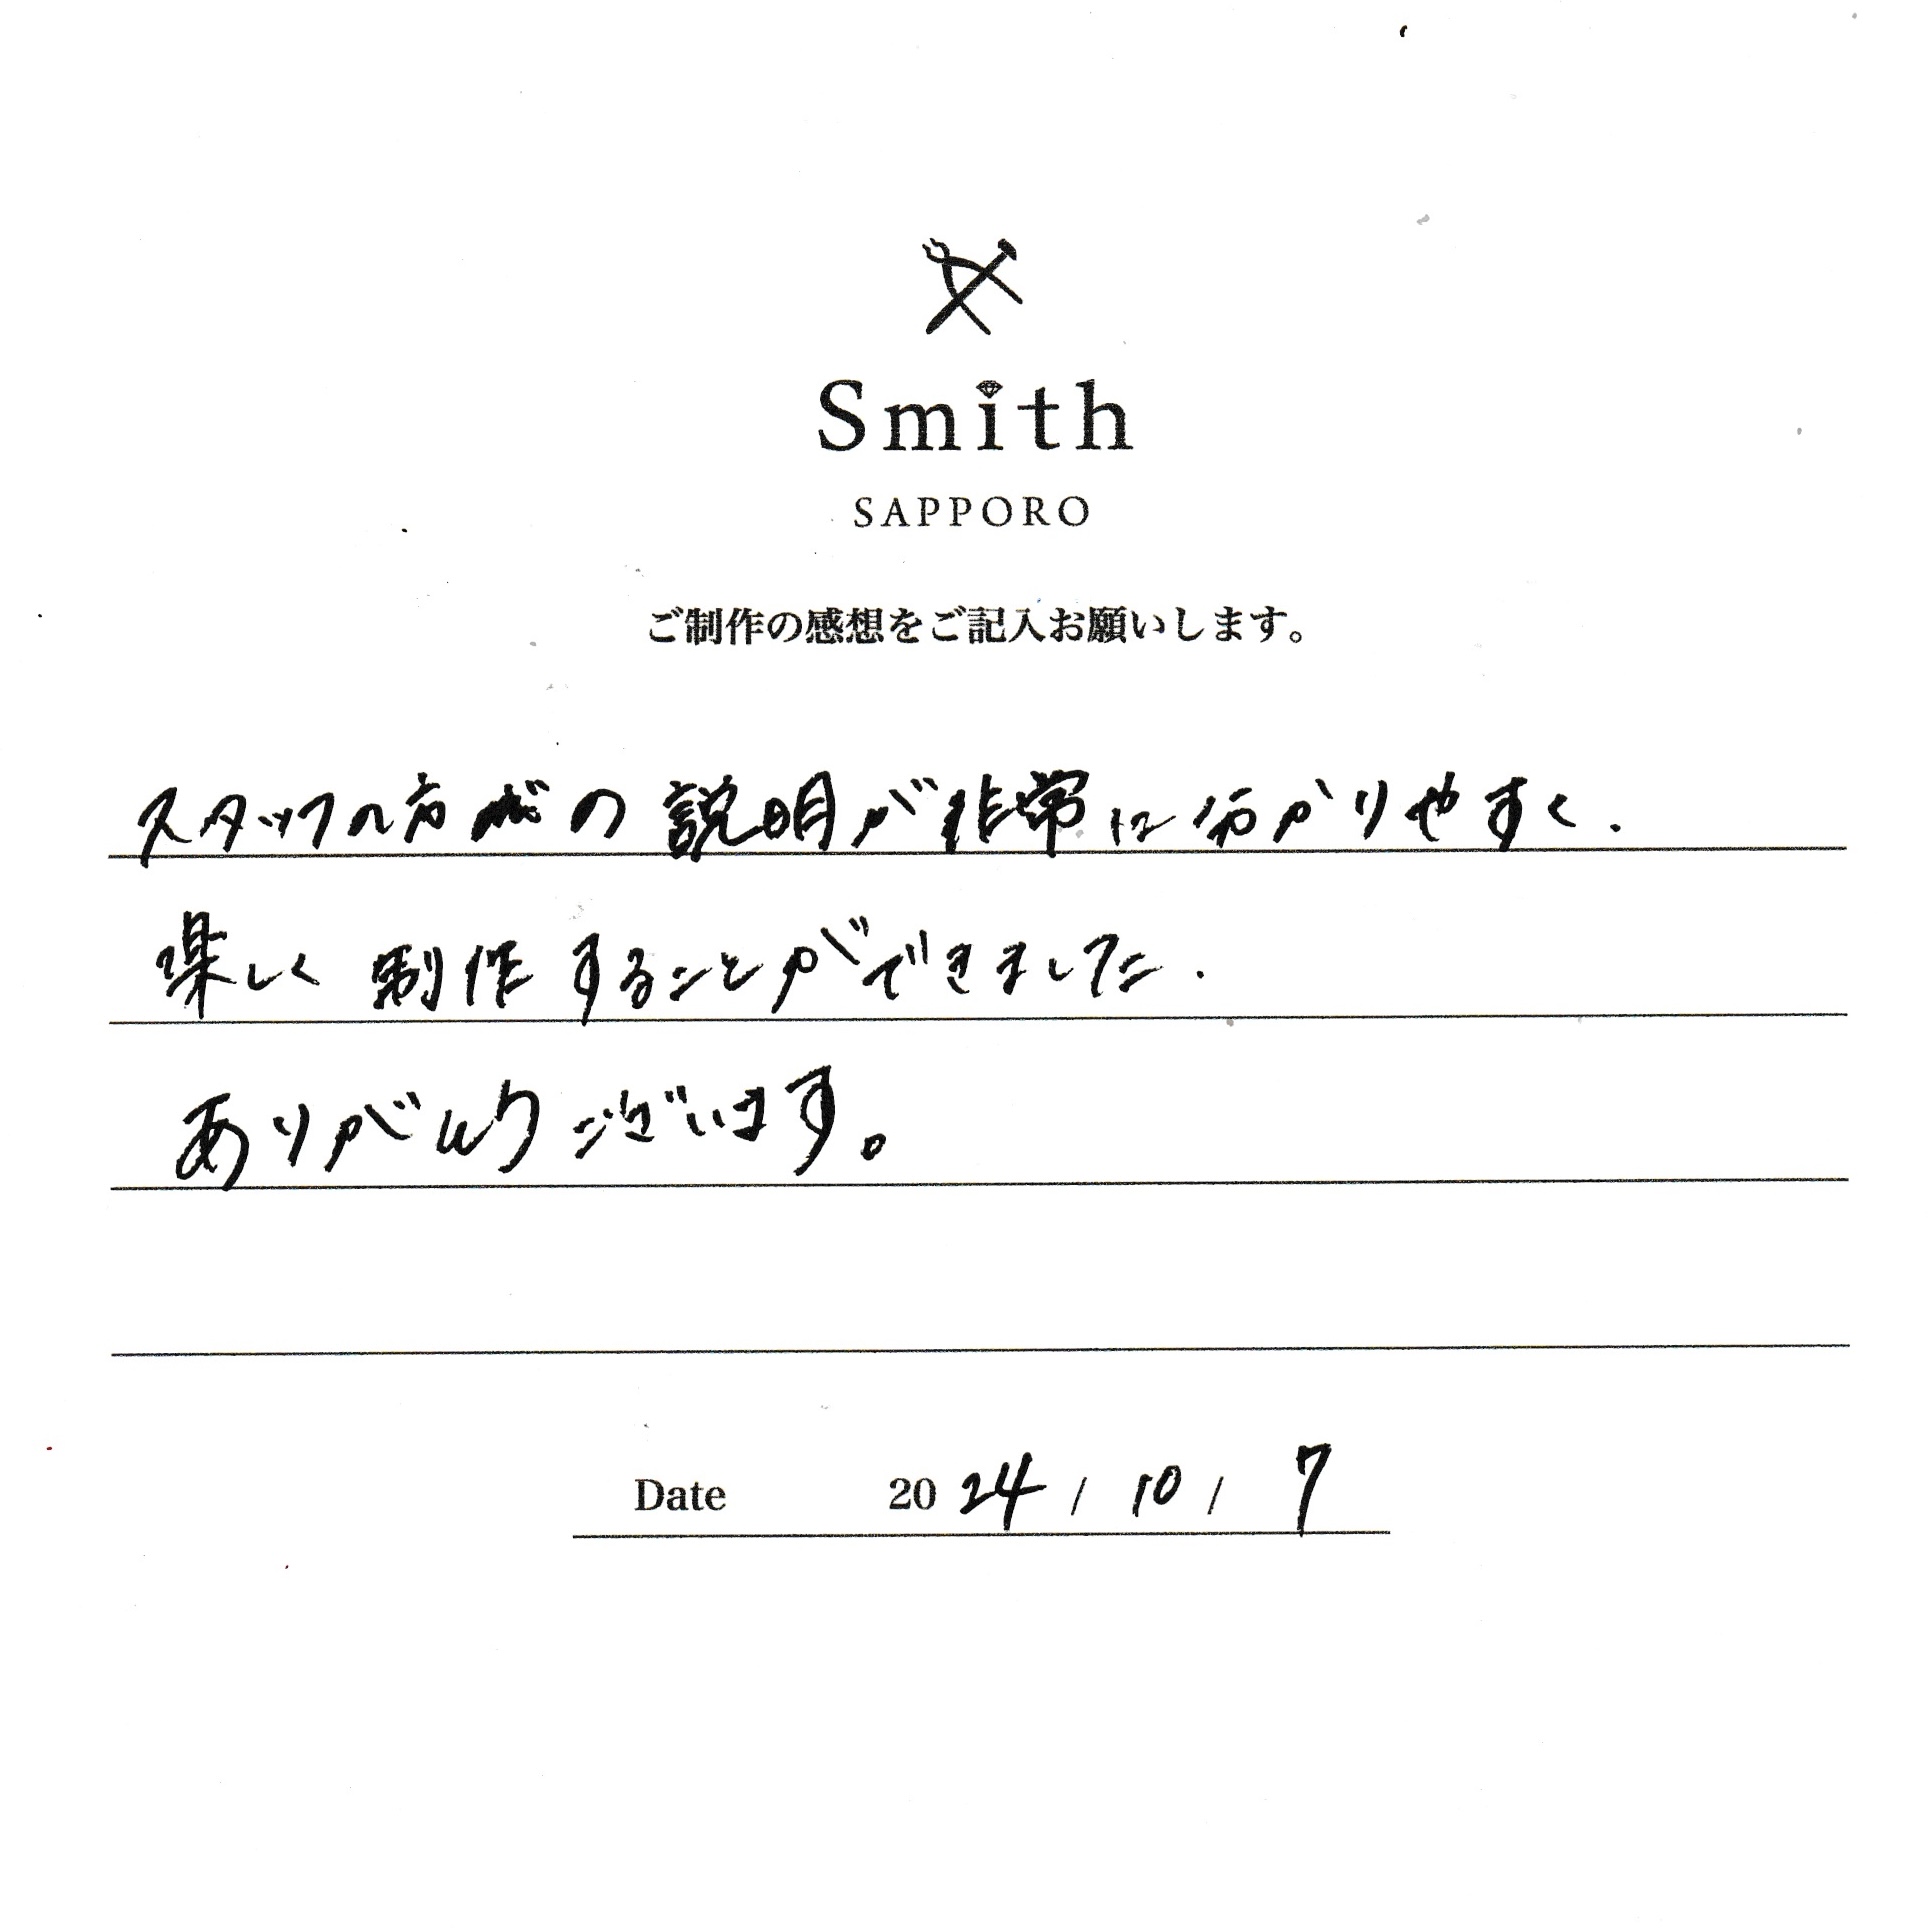 Smith
SAPPORO
ご制作の感想をご記入お願いします。
スタッフの方の説明が非常に分かりやすく.
楽しく制作することができました.
ありがとうございます。
Date 2024 / 10 / 7